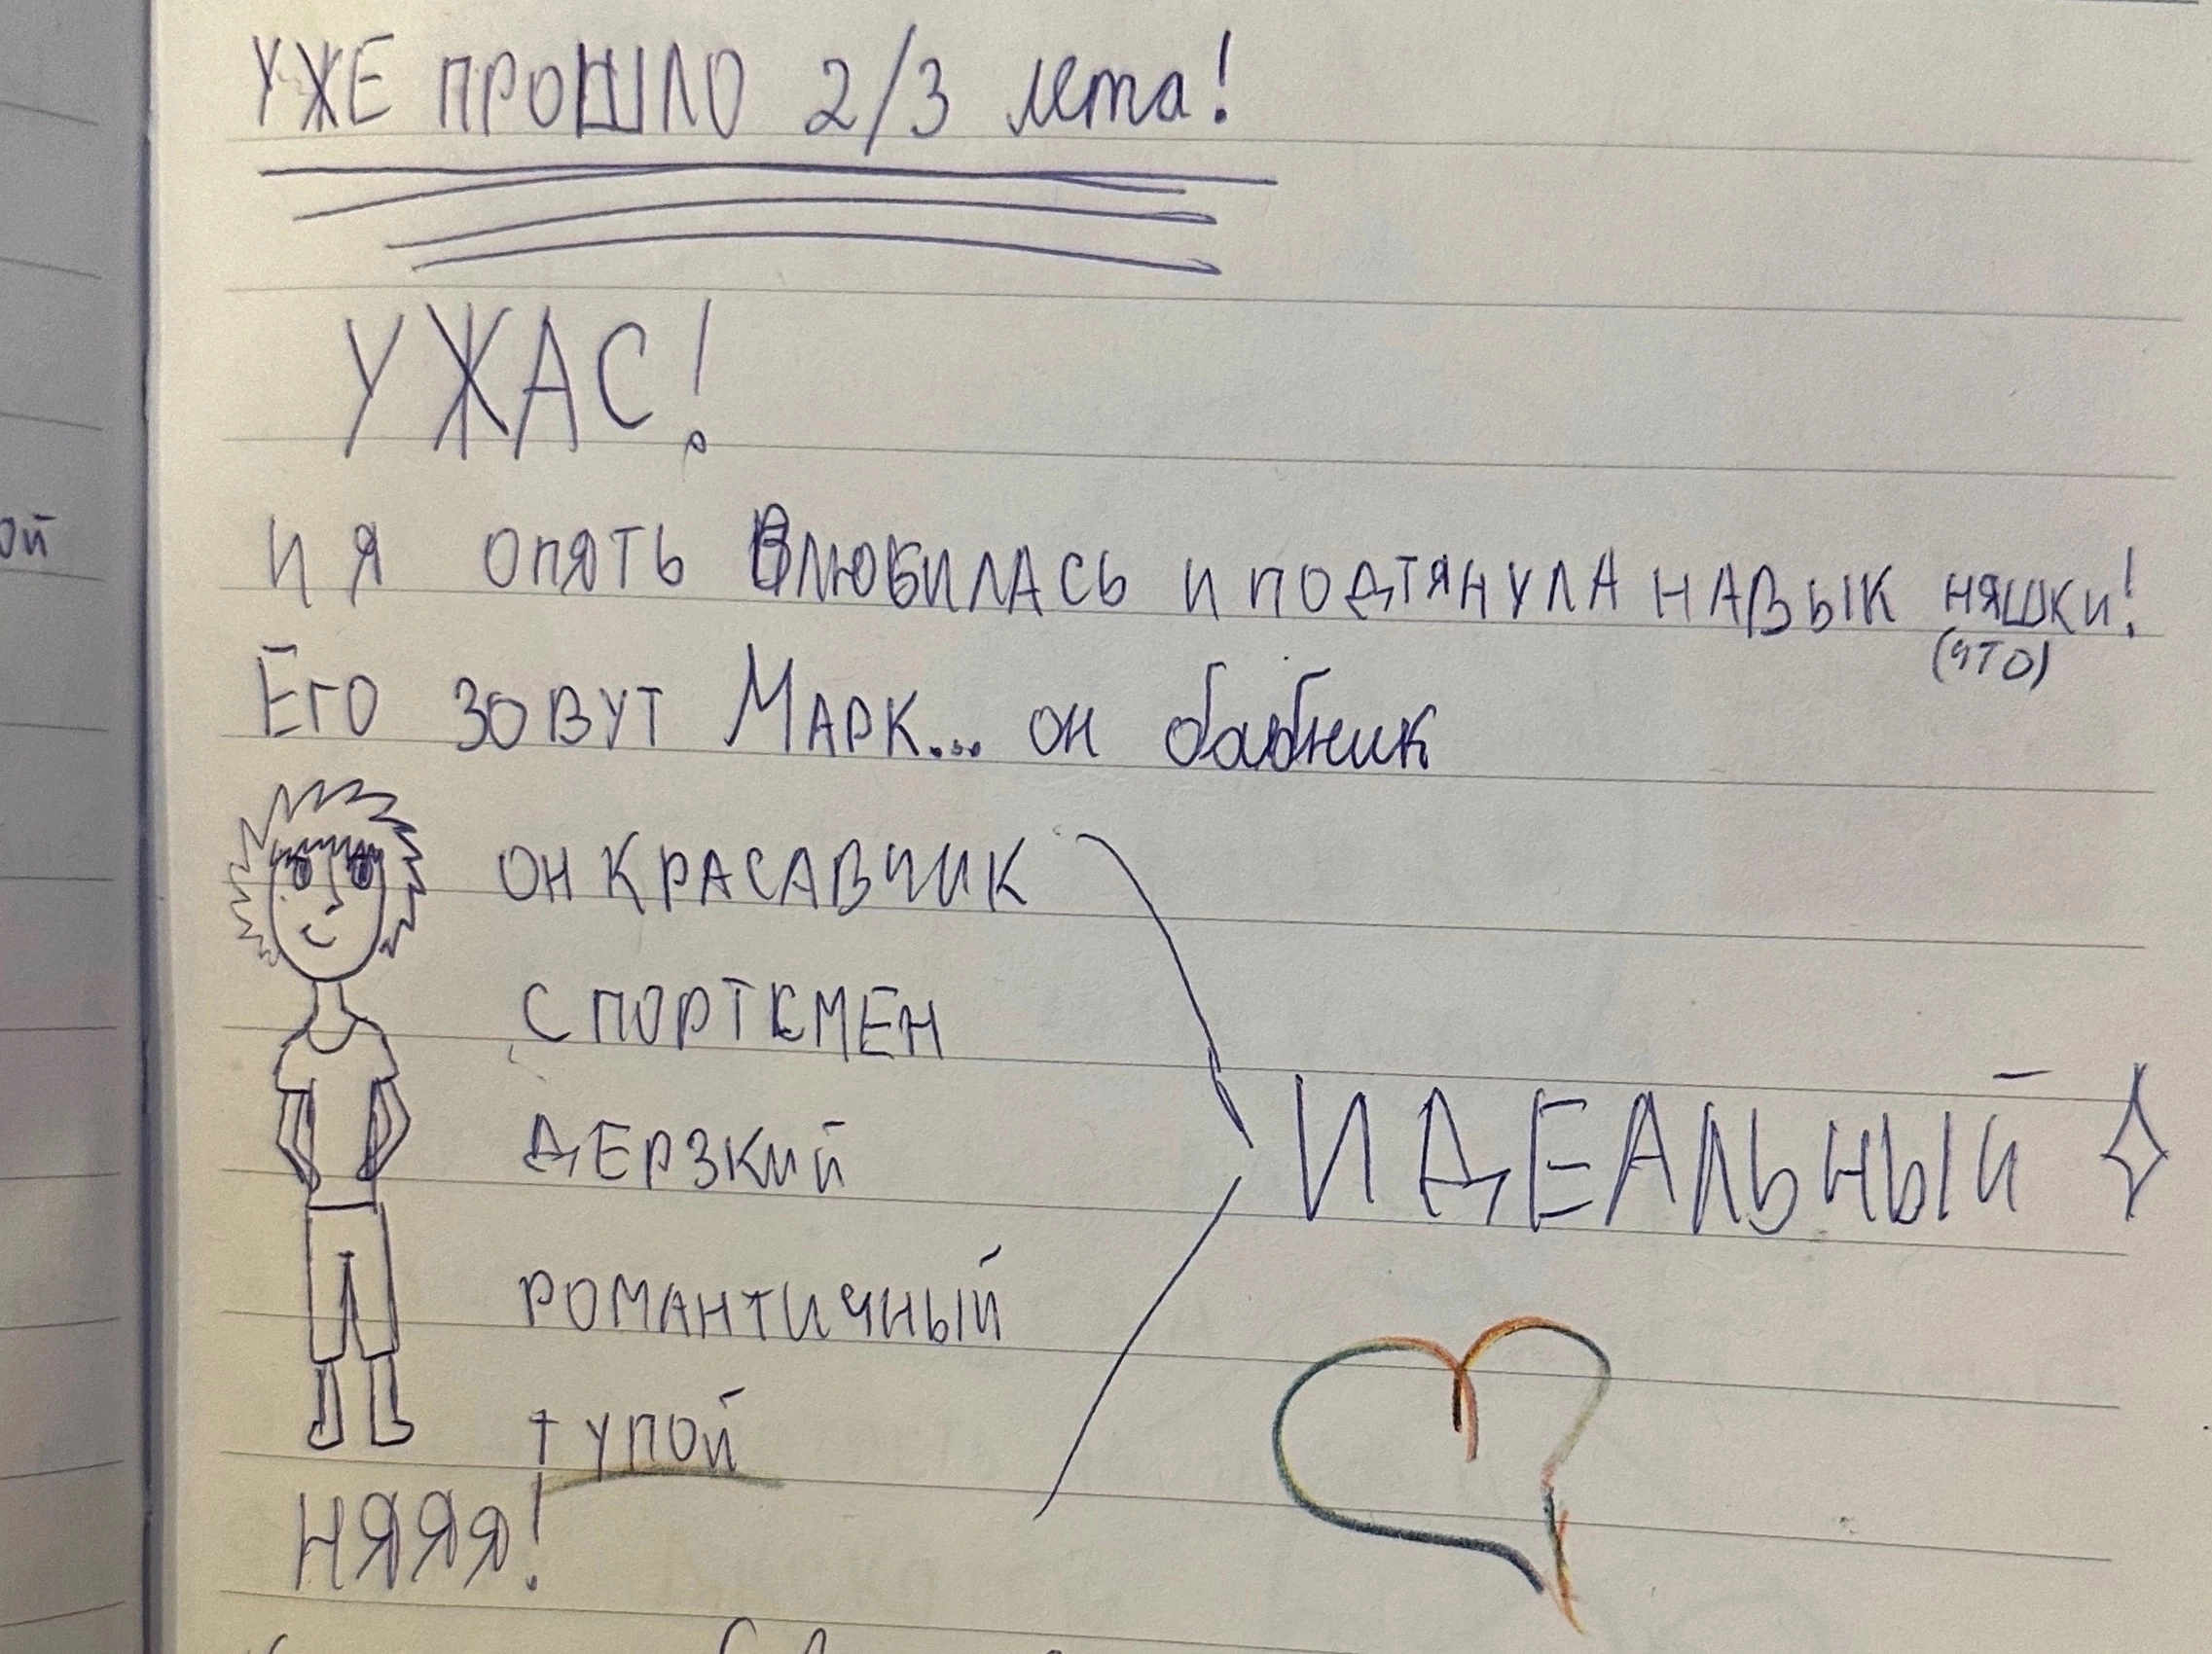 УЖЕ ПРОШЛО 2/3 лета!
УЖАС!
И Я ОПЯТЬ ВЛЮБИЛАСЬ И ПОДТЯНУЛА НАВЫК НЯШКИ!
(ЧТО)
ЕГО ЗОВУТ МАРК... ОН бабник
ОН КРАСАВЧИК
СПОРТСМЕН
ДЕРЗКИЙ
ИДЕАЛЬНЫЙ
РОМАНТИЧНЫЙ
ТУПОЙ
НЯЯЯ!
ой